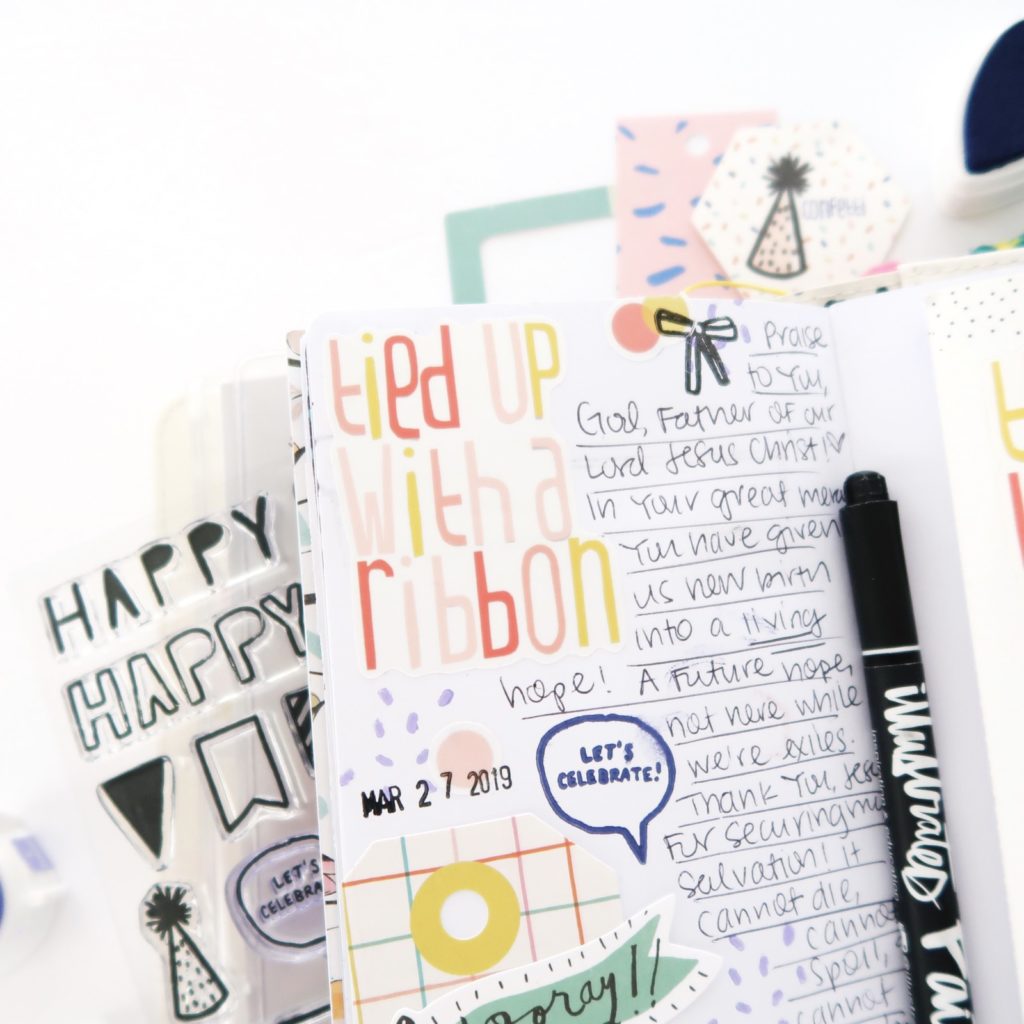 confetti
tied UP
with a
ribbon
Praise
to You,
God, Father of our
Lord Jesus Christ!
In Your great
You have given
us new birth
into a living
hope! A future hope,
not here while
we're exiles.
Thank You, Jesus
For securing my
salvation! It
cannot die,
cannot
spoil,
cannot
LET'S
CELEBRATE!
MAR 27 2019
hooray!!
HAPPY
HAPPY
LET'S
illustrated